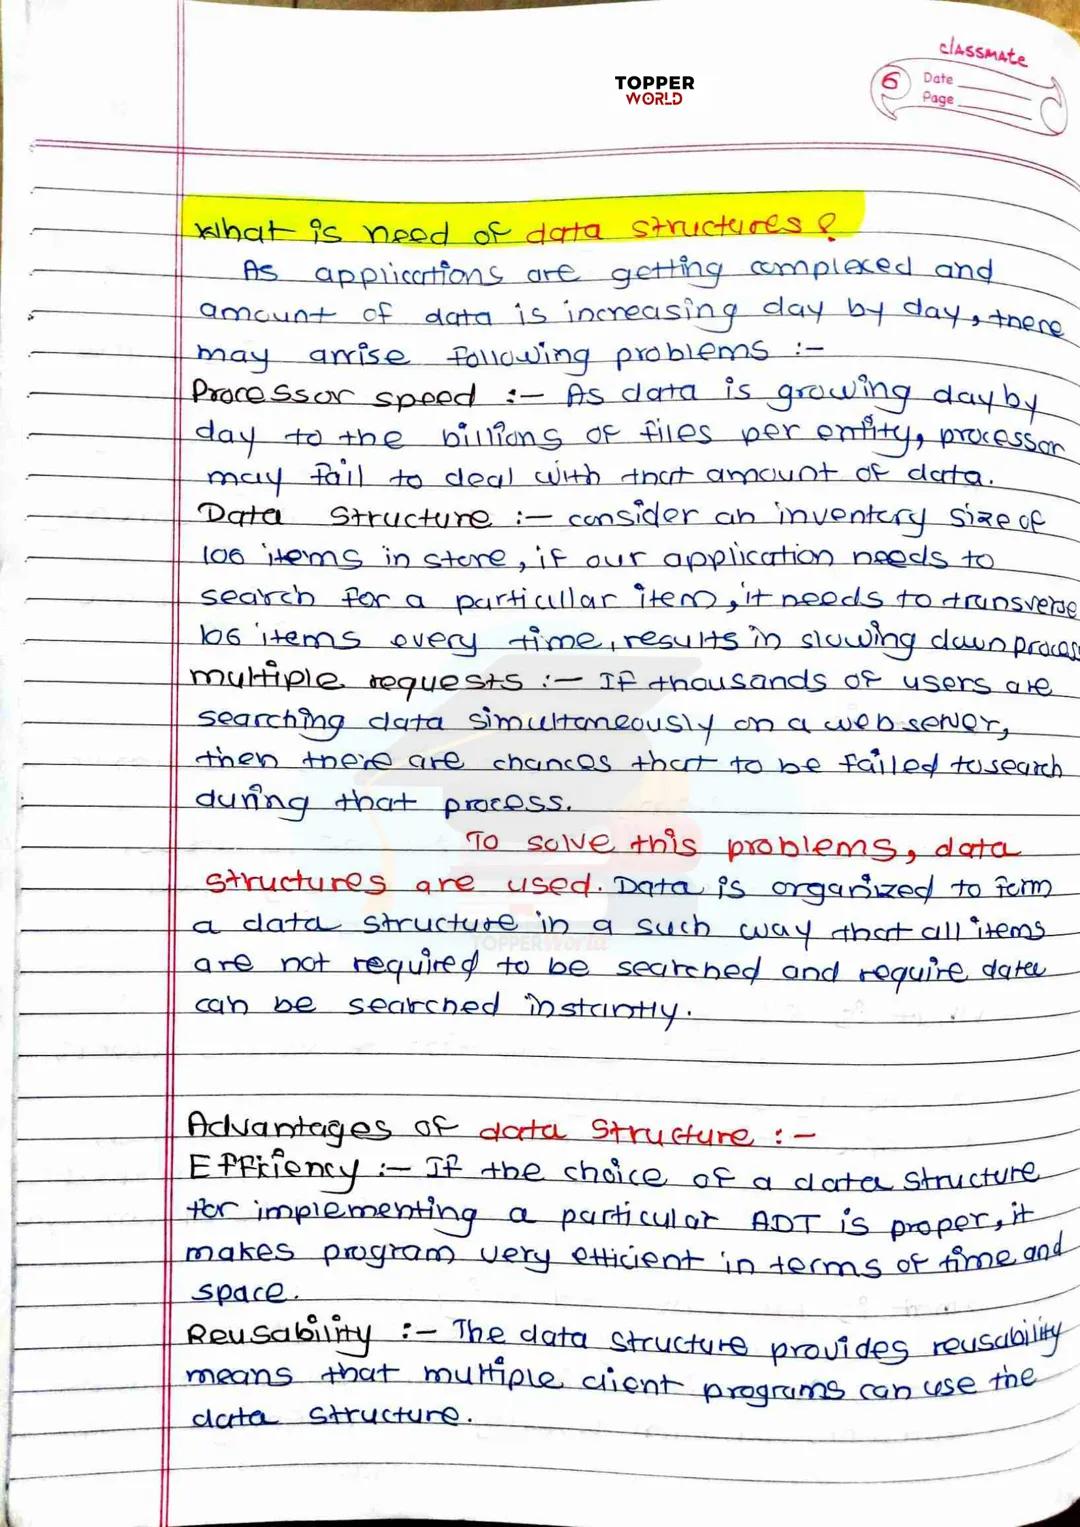 classmate
TOPPER
WORLD
6
Date
Page
What is need of data structures?
As applications are getting complexed and
amount of data is increasing day by day, there
may arrise following problems :-
Processor speed :- As data is growing day by
day to the billions of files per entity, processor
may fail to deal with that amount of data.
Data Structure :- consider an inventory size of
106 items in store, if our application needs to
search for a particullar item, it needs to transverse
106 items every time, results in slowing down process
multiple requests :- If thousands of users are
searching data simultaneously on a web server,
then there are chances that to be failed to search
during that process.
To solve this problems, data
structures are used. Data is organized to form
a data structure in a such way that all items
TOPPER World
are not required to be searched and require data
can be searched instantly.
Advantages of data Structure :-
Efficiency :- If the choice of a data structure
for implementing a particular ADT is proper, it
makes program very efficient in terms of time and
space.
Reusability :- The data structure provides reusability
means that multiple client programs can use the
data structure.